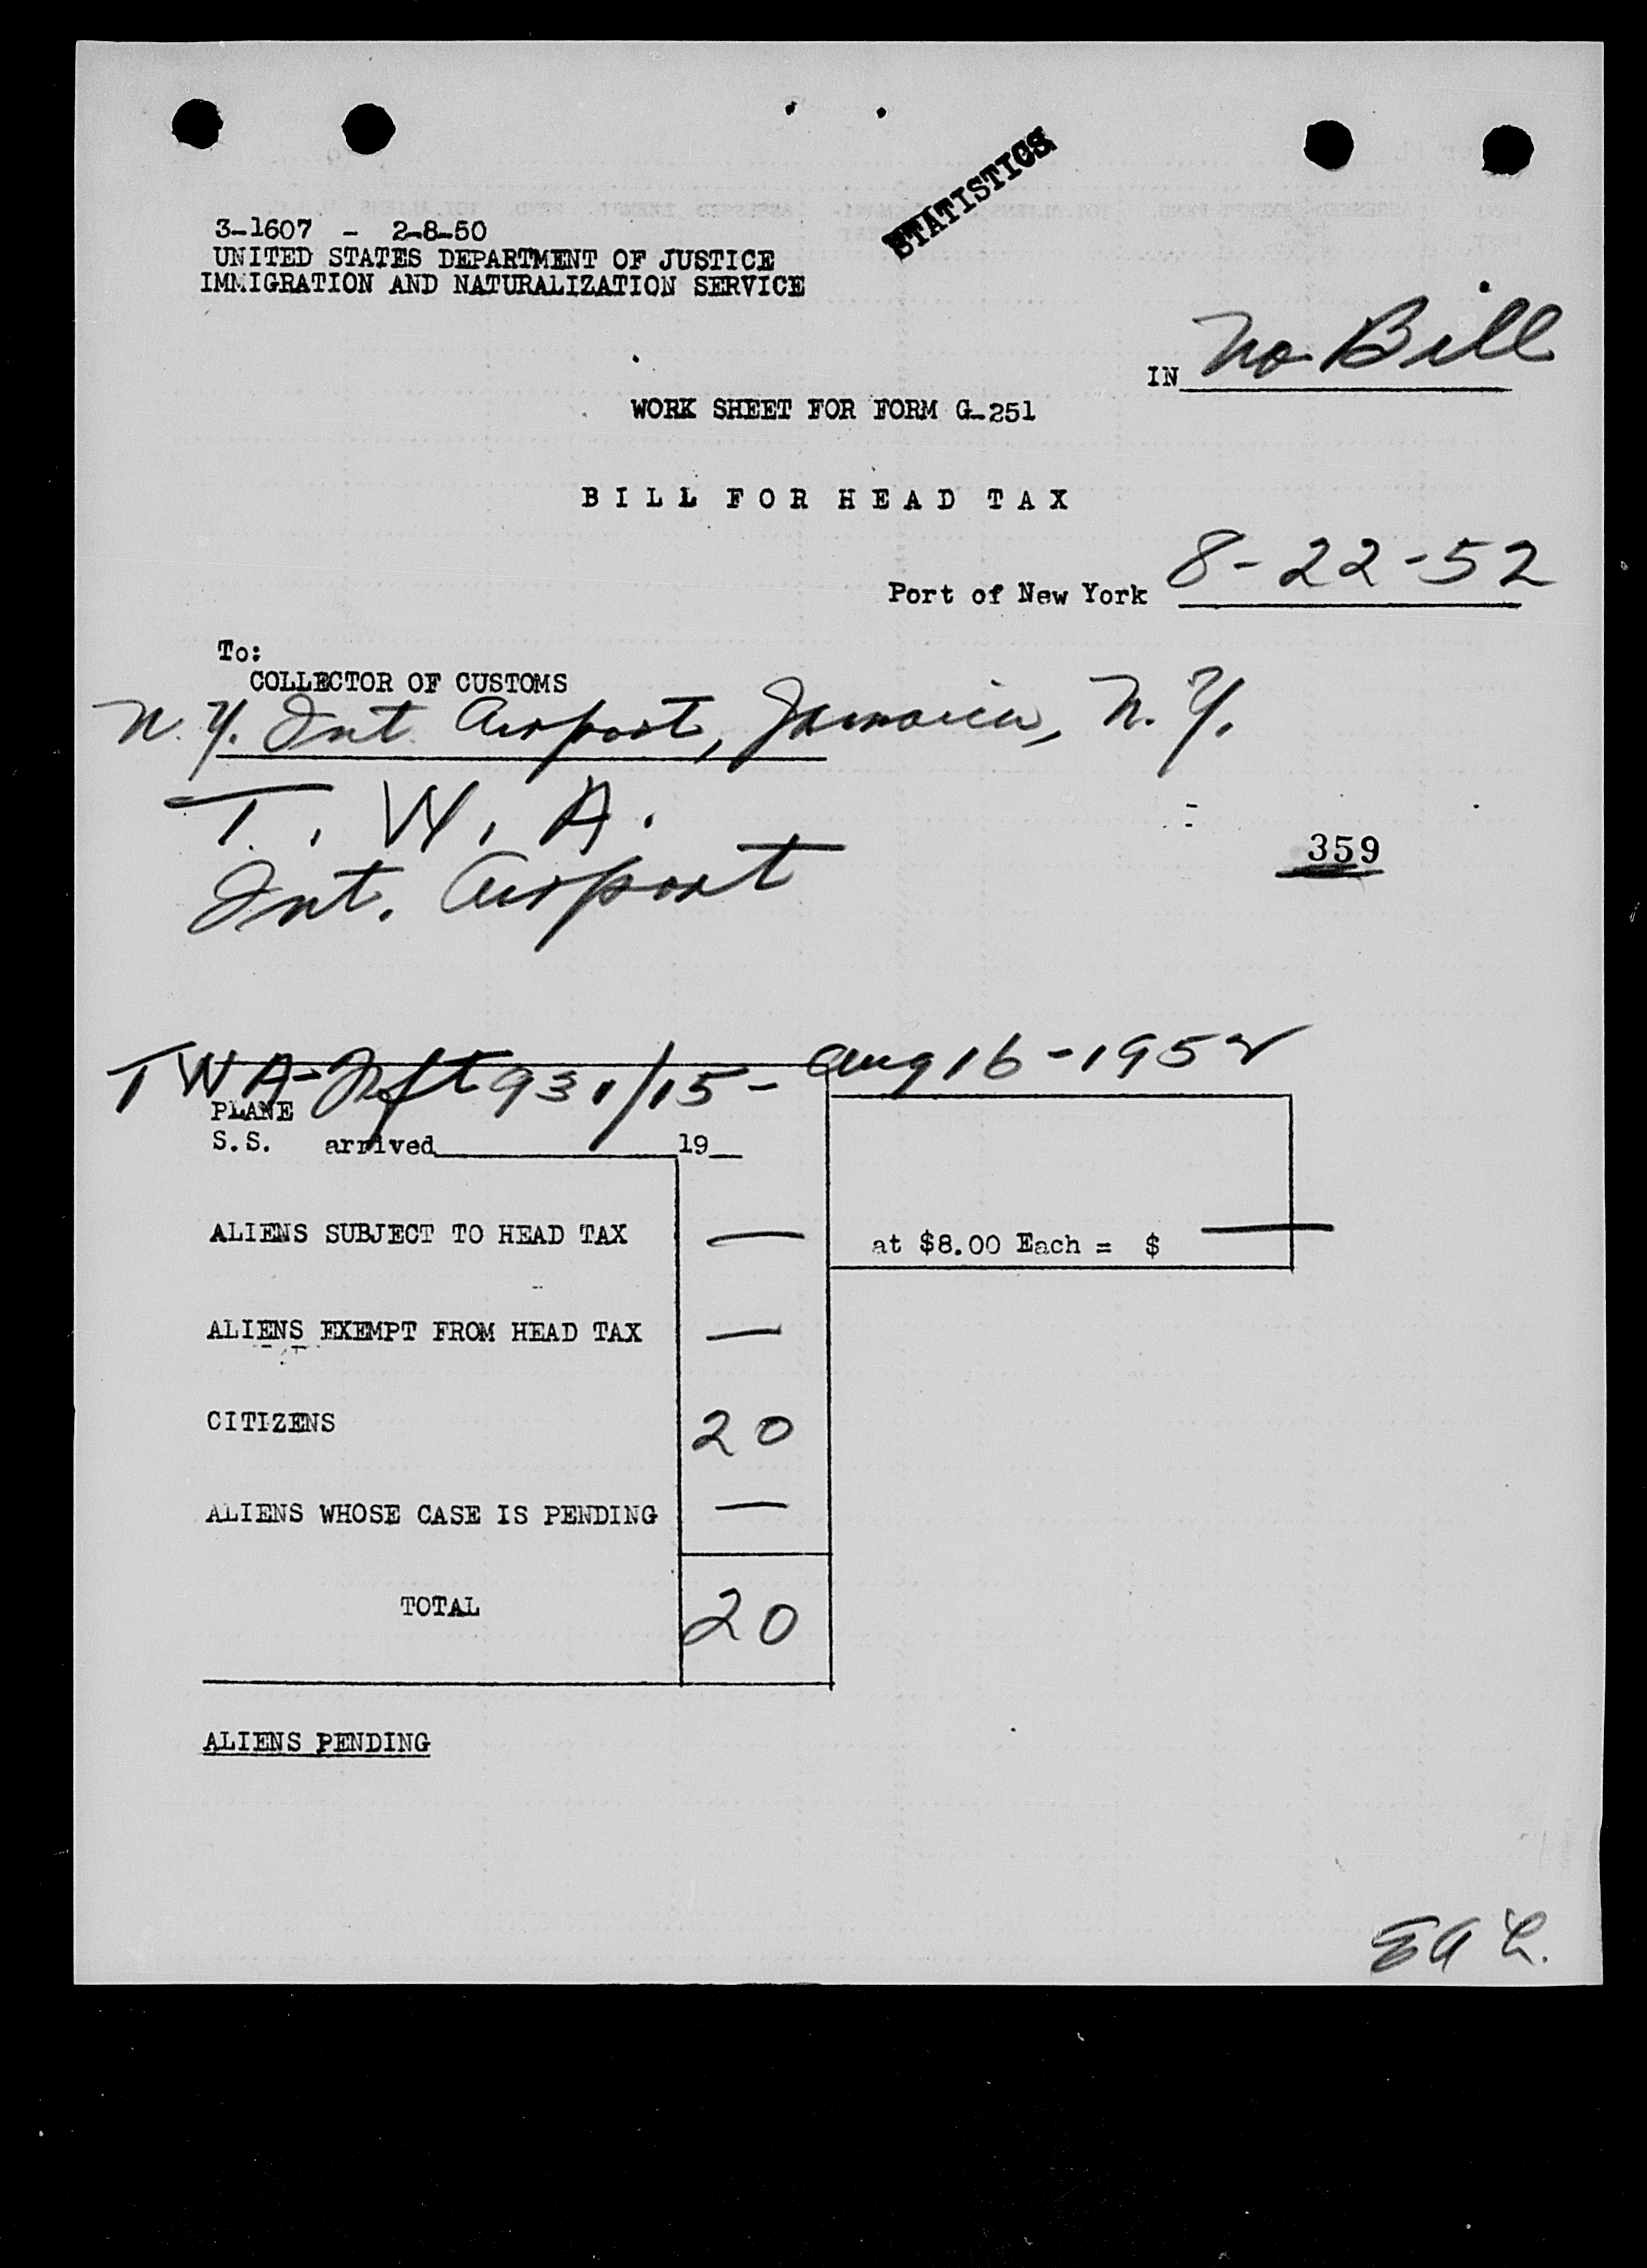 STATISTICS
3-1607 - 2-8-50
UNITED STATES DEPARTMENT OF JUSTICE
IMMIGRATION AND NATURALIZATION SERVICE
IN No Bill
WORK SHEET FOR FORM G-251
BILL FOR HEAD TAX
Port of New York 8-22-52
To:
COLLECTOR OF CUSTOMS
N.Y. Int Airport, Jamaica, N.Y.
T.W.A.
359
Int. Airport
TWA- 931/15- Aug 16-1952
PLANE
S.S. arrived 19
ALIENS SUBJECT TO HEAD TAX —
at $8.00 Each = $ —
ALIENS EXEMPT FROM HEAD TAX —
CITIZENS 20
ALIENS WHOSE CASE IS PENDING —
TOTAL 20
ALIENS PENDING